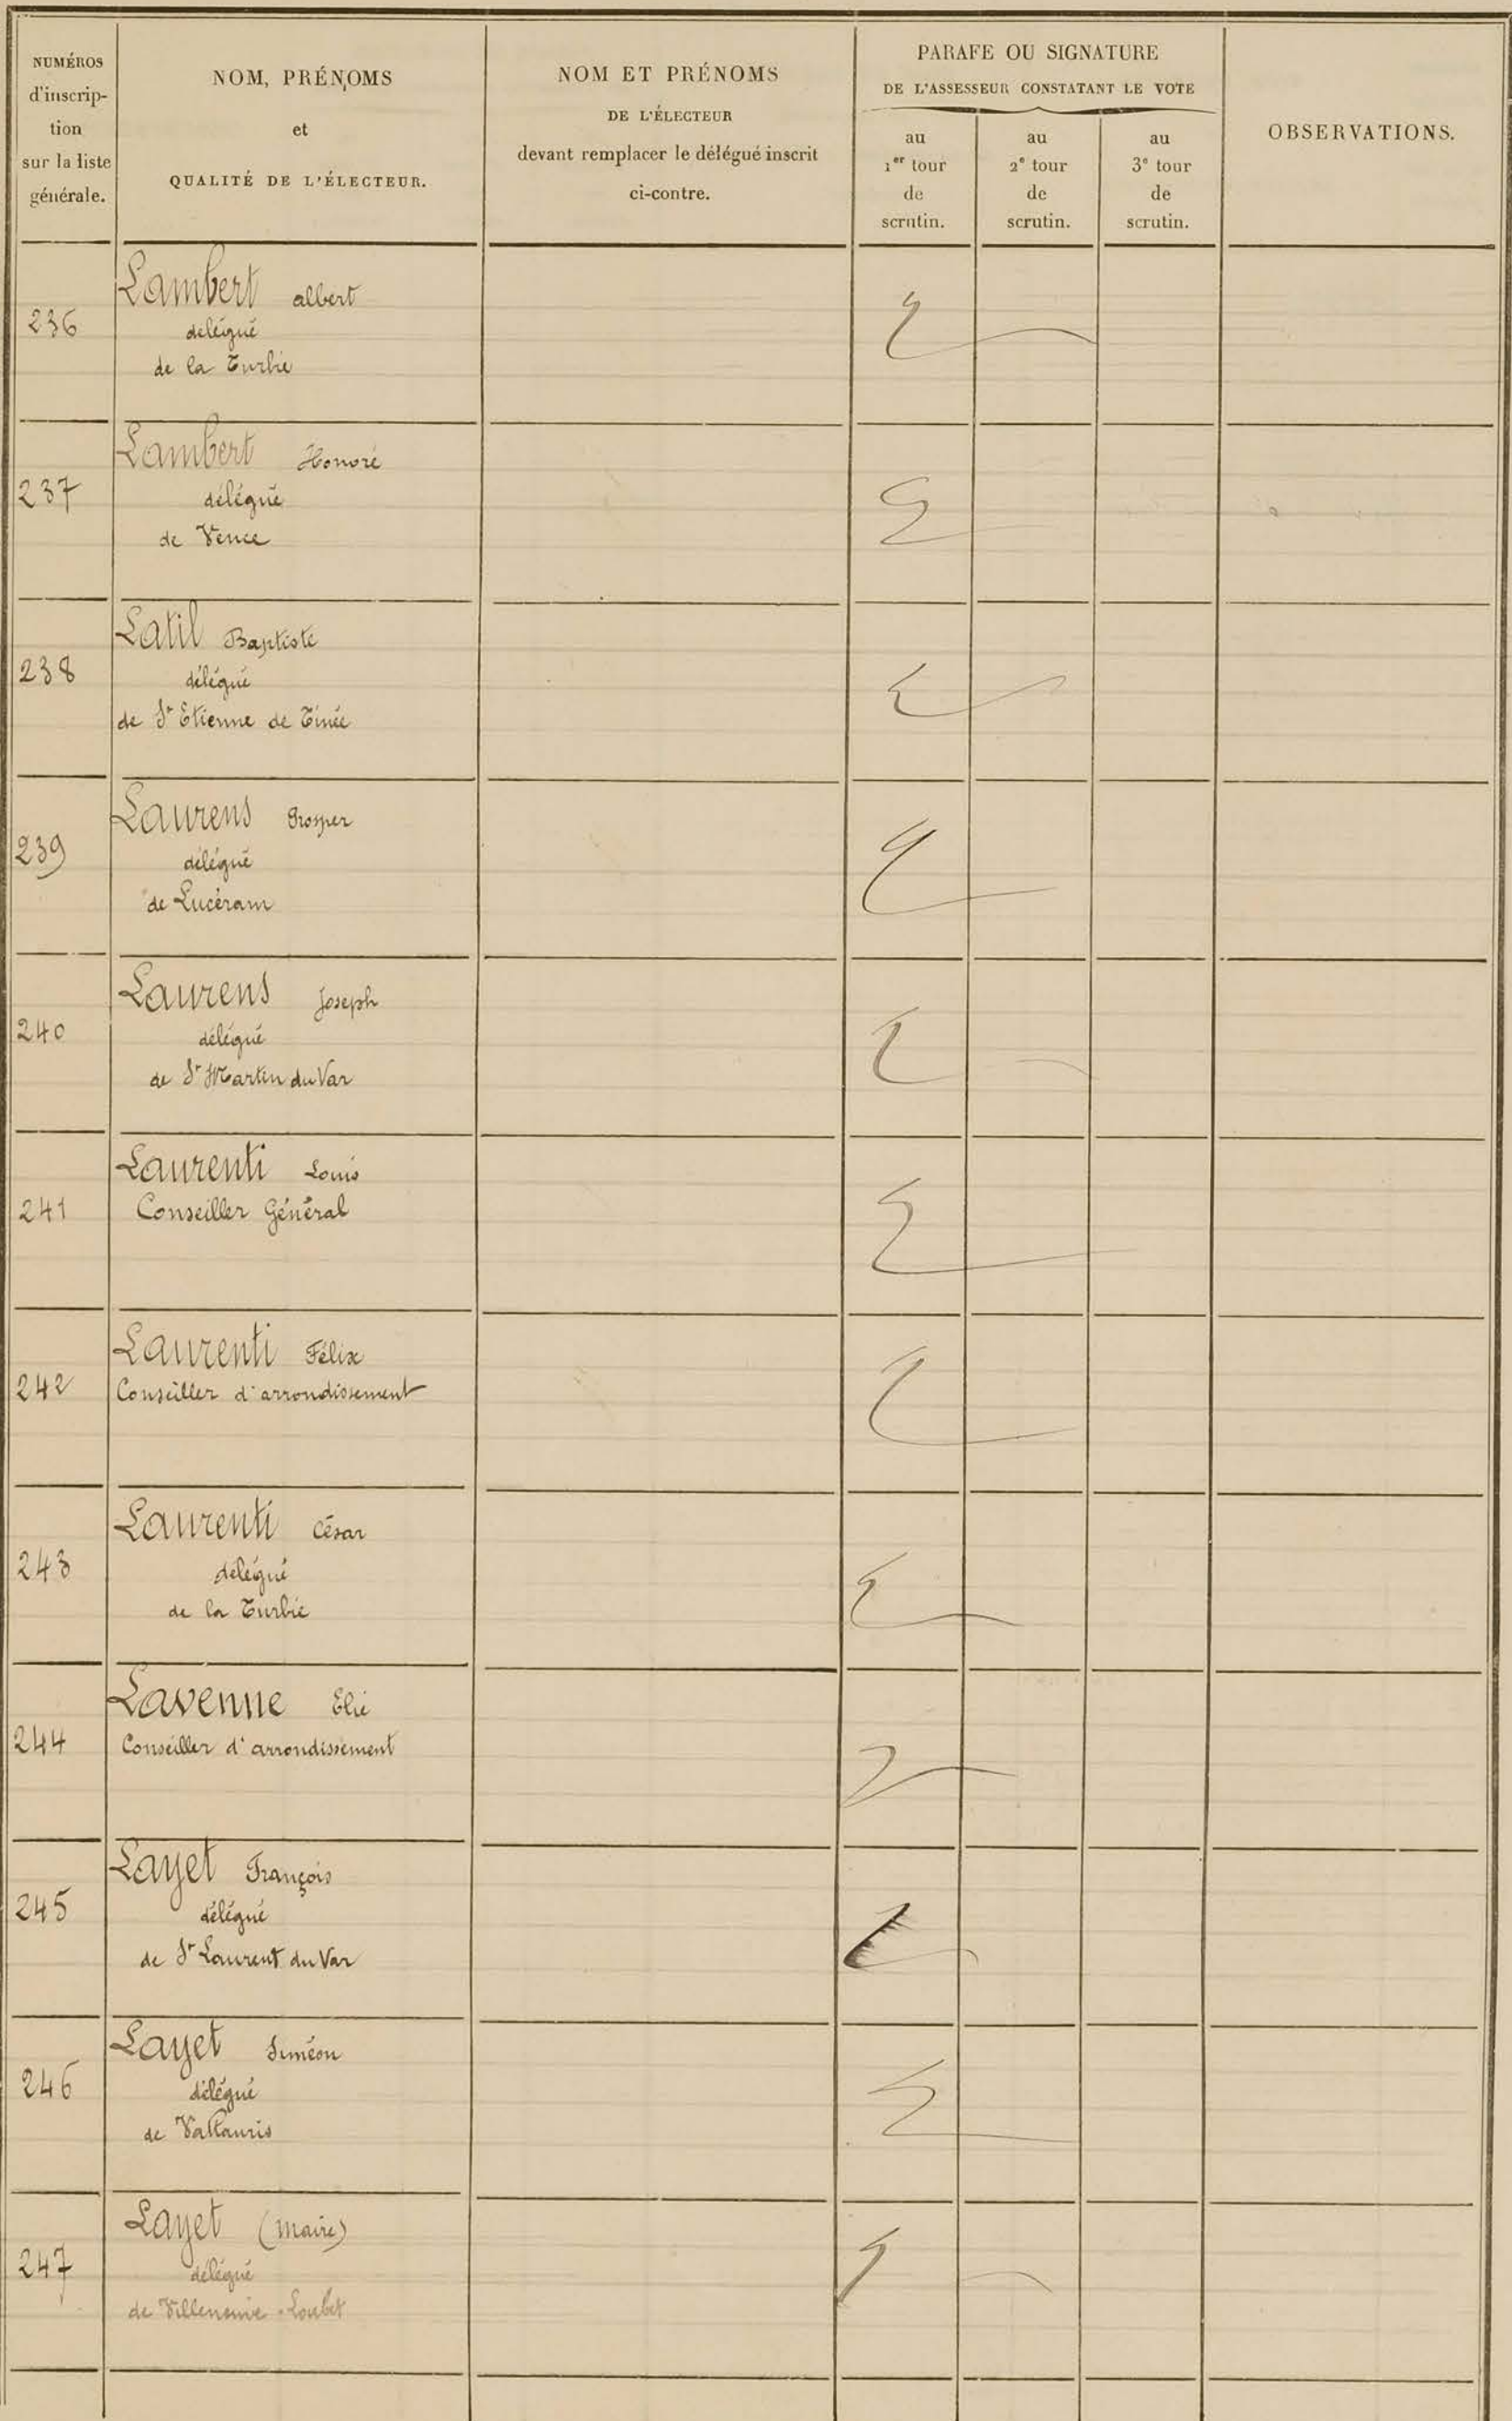 NUMÉROS
d'inscrip-
tion
sur la liste
générale.
NOM, PRÉNOMS
et
QUALITÉ DE L'ÉLECTEUR.
NOM ET PRÉNOMS
DE L'ÉLECTEUR
devant remplacer le délégué inscrit
ci-contre.
PARAFE OU SIGNATURE
DE L'ASSESSEUR CONSTATANT LE VOTE
au
1er tour
de
scrutin.
au
2e tour
de
scrutin.
au
3e tour
de
scrutin.
OBSERVATIONS.
236
Lambert albert
délégué
de la Turbie
237
Lambert Honoré
délégué
de Vence
238
Latil Baptiste
délégué
de St Etienne de Tinée
239
Laurens Prosper
délégué
de Lucéram
240
Laurens Joseph
délégué
de St Martin du Var
241
Laurenti Louis
Conseiller Général
242
Laurenti Félix
Conseiller d'arrondissement
243
Laurenti César
délégué
de la Turbie
244
Lavenne Elie
Conseiller d'arrondissement
245
Layet François
délégué
de St Laurent du Var
246
Layet Siméon
délégué
de Vallauris
247
Layet (Maire)
délégué
de Villeneuve-Loubet